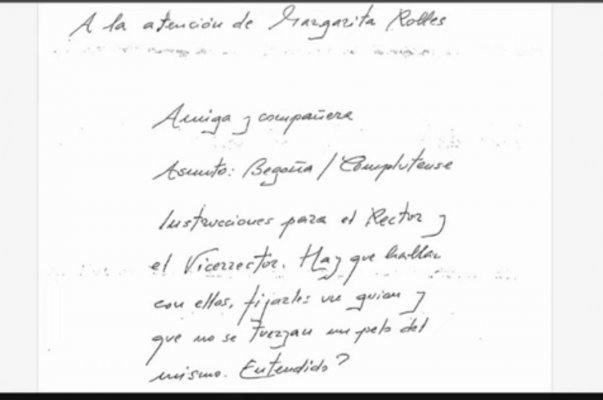 A la atención de Margarita Robles
Amiga y compañera
Asunto: Begoña / Complutense
Instrucciones para el Rector y
el Vicerrector. Hay que hablar
con ellos, fijarles un guion y
que no se tuerzan un pelo del
mismo. Entendido?